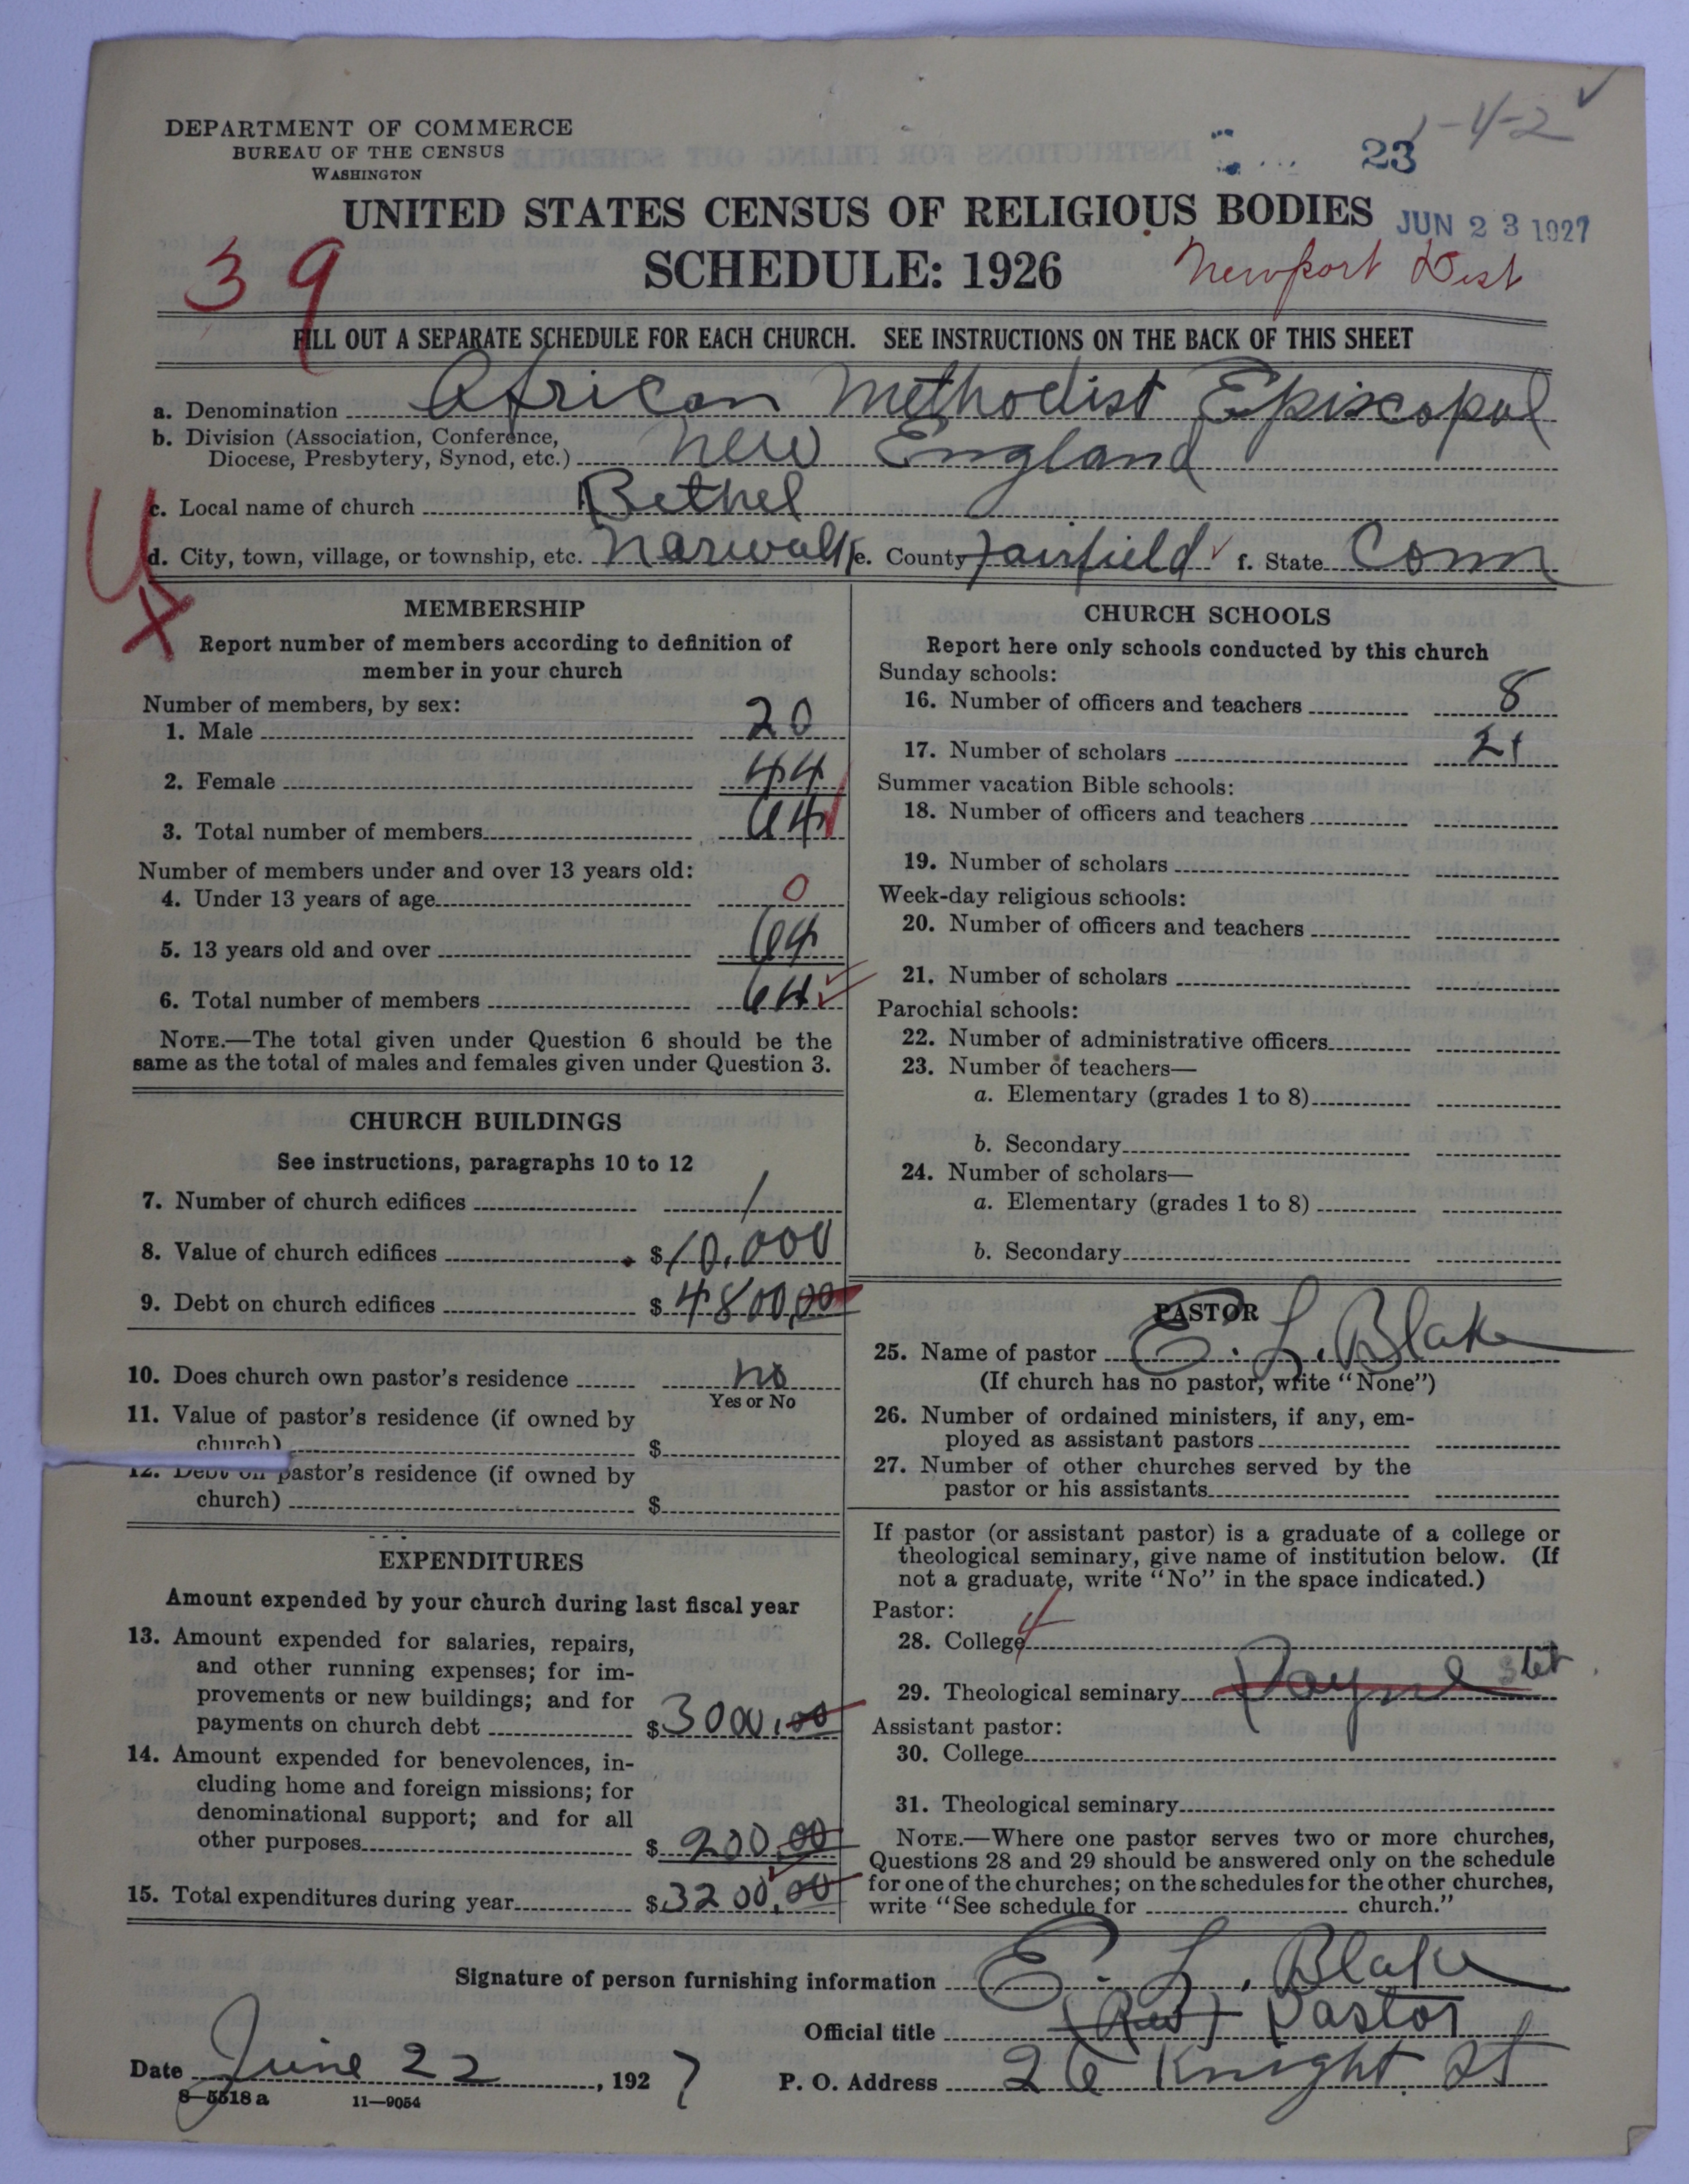 1-4-2 ✓
DEPARTMENT OF COMMERCE
BUREAU OF THE CENSUS
WASHINGTON
23
UNITED STATES CENSUS OF RELIGIOUS BODIES
JUN 23 1927
SCHEDULE: 1926
Newport Dist
39
FILL OUT A SEPARATE SCHEDULE FOR EACH CHURCH. SEE INSTRUCTIONS ON THE BACK OF THIS SHEET
a. Denomination African Methodist Episcopal
b. Division (Association, Conference,
Diocese, Presbytery, Synod, etc.) New England
c. Local name of church Bethel
d. City, town, village, or township, etc. Norwalk e. County Fairfield ✓ f. State Conn
U
X
MEMBERSHIP
Report number of members according to definition of
member in your church
Number of members, by sex:
1. Male 20
2. Female 44
3. Total number of members 64
Number of members under and over 13 years old:
4. Under 13 years of age 0
5. 13 years old and over 64
6. Total number of members 64 ✓
NOTE.—The total given under Question 6 should be the
same as the total of males and females given under Question 3.
CHURCH BUILDINGS
See instructions, paragraphs 10 to 12
7. Number of church edifices 1
8. Value of church edifices $10,000
9. Debt on church edifices $4800.00
10. Does church own pastor's residence no
Yes or No
11. Value of pastor's residence (if owned by
church) $
12. Debt on pastor's residence (if owned by
church) $
EXPENDITURES
Amount expended by your church during last fiscal year
13. Amount expended for salaries, repairs,
and other running expenses; for im-
provements or new buildings; and for
payments on church debt $3000.00
14. Amount expended for benevolences, in-
cluding home and foreign missions; for
denominational support; and for all
other purposes $200.00
15. Total expenditures during year $3200.00
CHURCH SCHOOLS
Report here only schools conducted by this church
Sunday schools:
16. Number of officers and teachers 8
17. Number of scholars 21
Summer vacation Bible schools:
18. Number of officers and teachers
19. Number of scholars
Week-day religious schools:
20. Number of officers and teachers
21. Number of scholars
Parochial schools:
22. Number of administrative officers
23. Number of teachers—
a. Elementary (grades 1 to 8)
b. Secondary
24. Number of scholars—
a. Elementary (grades 1 to 8)
b. Secondary
PASTOR
25. Name of pastor E. L. Blake
(If church has no pastor, write "None")
26. Number of ordained ministers, if any, em-
ployed as assistant pastors
27. Number of other churches served by the
pastor or his assistants
If pastor (or assistant pastor) is a graduate of a college or
theological seminary, give name of institution below. (If
not a graduate, write "No" in the space indicated.)
Pastor:
28. College 4
29. Theological seminary Payne stet
Assistant pastor:
30. College
31. Theological seminary
NOTE.—Where one pastor serves two or more churches,
Questions 28 and 29 should be answered only on the schedule
for one of the churches; on the schedules for the other churches,
write "See schedule for church."
Signature of person furnishing information E. L. Blake
Official title (Rev) Pastor
Date June 22, 1927 P. O. Address 26 Knight St
8—5518 a 11—9054